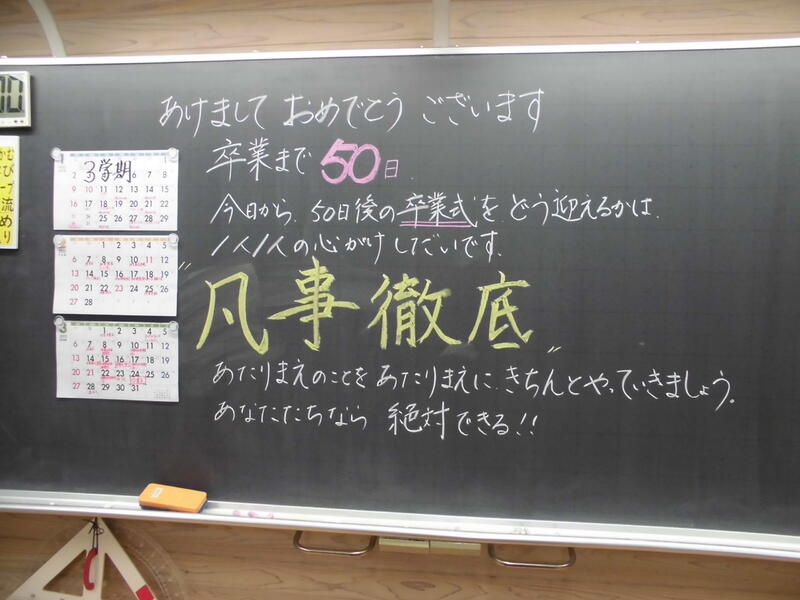 あけまして おめでとう ございます
卒業まで 50日.
今日から、50日後の卒業式をどう迎えるかは、
1人1人の心がけしだいです。
"凡事徹底"
あたりまえのことを あたりまえに、きちんとやっていきましょう。
あなたたちなら 絶対できる!!
3学期
1
6 7 8
9 10 11 12 13 14 15
16 17 18 19 20 21 22
25 26 27 28 29
1 2 3 4 5
6 7 8 9 10 11 12
13 14 15 16 17 18 19
20 21 22 23 24 25 26
27 28
3
1 2 3 4 5
6 7 8 9 10 11 12
13 14 15 16 17 18 19
20 21 22 23 24 25 26
27 28 29 30 31